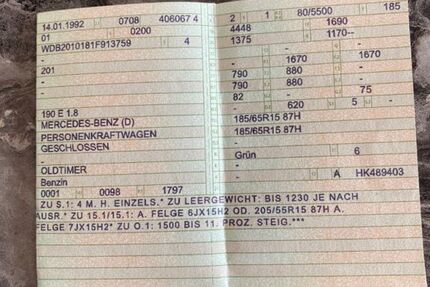 14.01.1992 0708 406067 4
01 0200
WDB2010181F913759 4
-
201
-
-
190 E 1.8
MERCEDES-BENZ (D)
PERSONENKRAFTWAGEN
GESCHLOSSEN
-
OLDTIMER
Benzin
0001 0098 1797
2 1 80/5500 185
4448 1690
1375 1170--
- 1670 1670
790 880 -
790 880 75
82 - -
- 620 5 -
185/65R15 87H
185/65R15 87H
-
Grün 6
-
A HK489403
ZU S.1: 4 M. H. EINZELS.* ZU LEERGEWICHT: BIS 1230 JE NACH
AUSR.* ZU 15.1/15.1: A. FELGE 6JX15H2 OD. 205/55R15 87H A.
FELGE 7JX15H2* ZU O.1: 1500 BIS 11. PROZ. STEIG.***